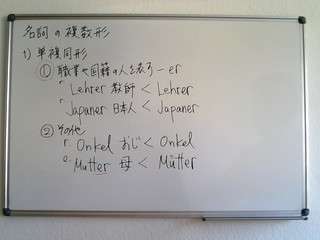 名詞の複数形
1) 単複同形
① 職業や国籍の人を表す -er
r Lehrer 教師 < Lehrer
r Japaner 日本人 < Japaner
② その他
r. Onkel おじ < Onkel
e. Mutter 母 < Mütter